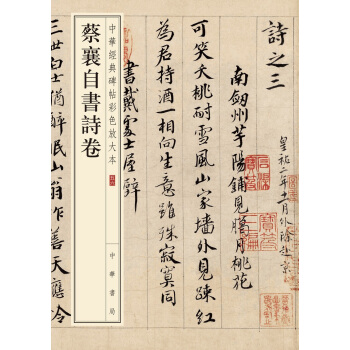 詩之三
皇祐二年十一月外除赴京
南劍州芋陽鋪見臘月桃花
可笑夭桃耐雪風山家墻外見踈紅
為君持酒一相向生意雖殊寂寞同
書戴處士屋壁
中華經典碑帖彩色放大本
蔡襄自書詩卷
中華書局
三世白士猶醉眠山翁作善天應怜